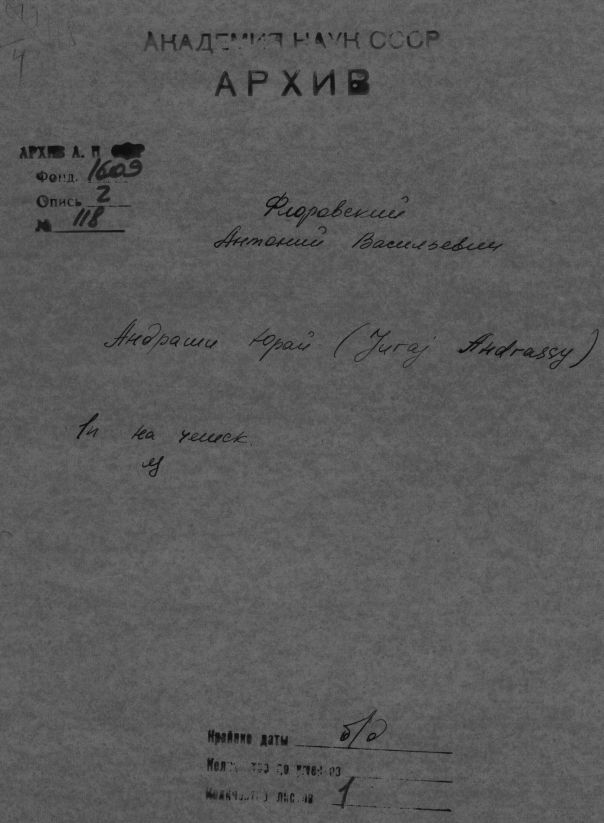 АКАДЕМИЯ НАУК СССР
АРХИВ
АРХИВ А. Н
Фонд. 1609
Опись 2
№ 118
Флоровский
Антоний Васильевич
Андраши Юрай (Juraj Andrassy)
1п на чешск.
яз
Крайние даты б/д
Количество документов
Количество листов 1